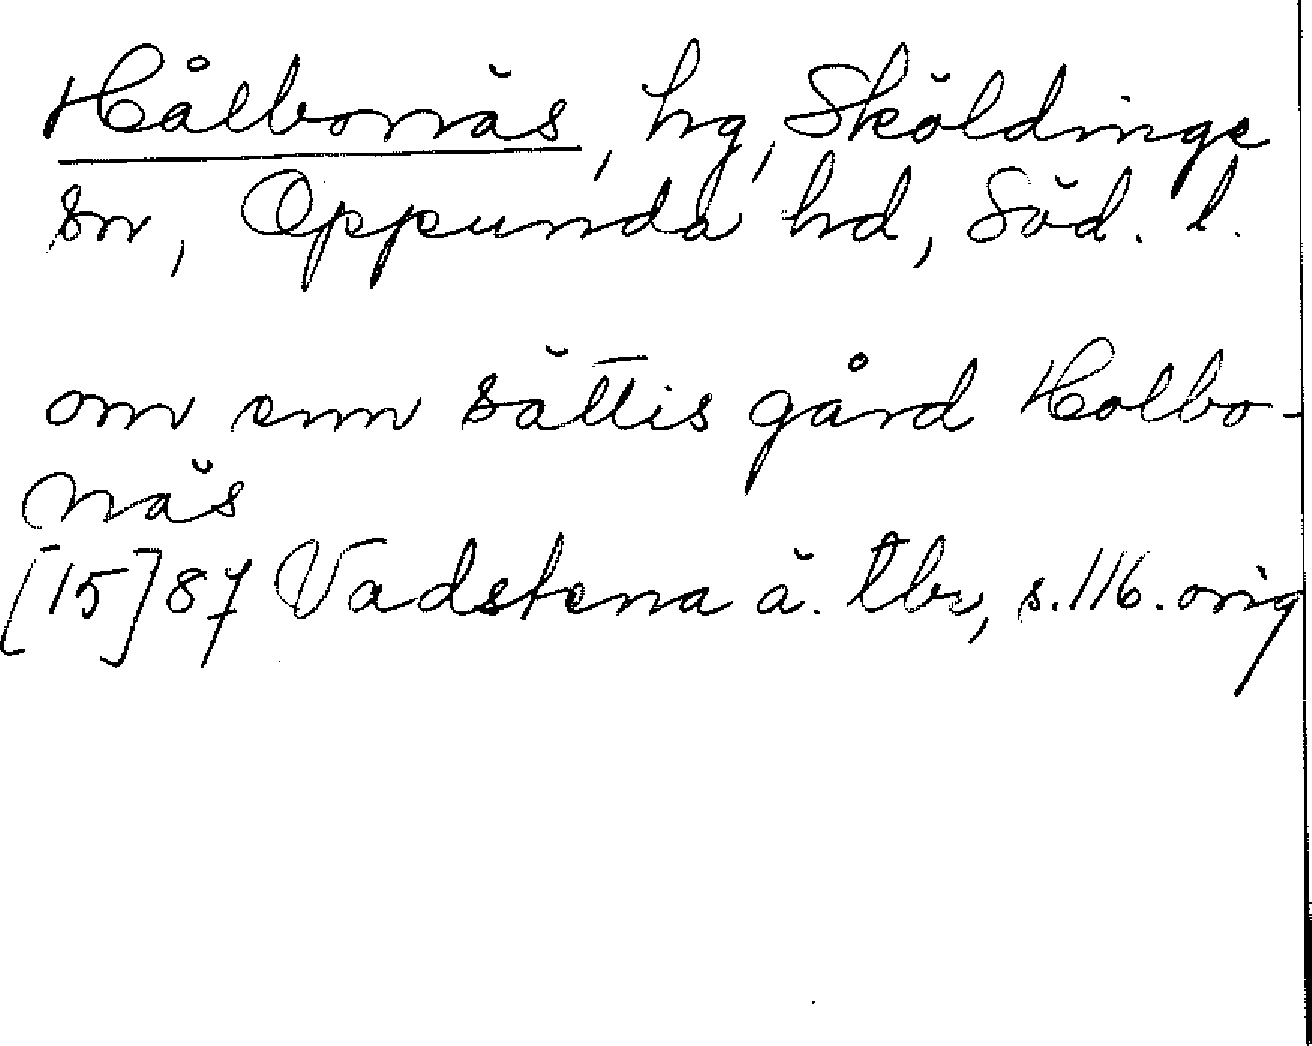 Hålbonäs, hg, Sköldinge
sn, Oppunda hd, Söd. l.
om enn sättis gård Holbo-
näs
[15]87 Vadstena ä. tbr, s.116. orig